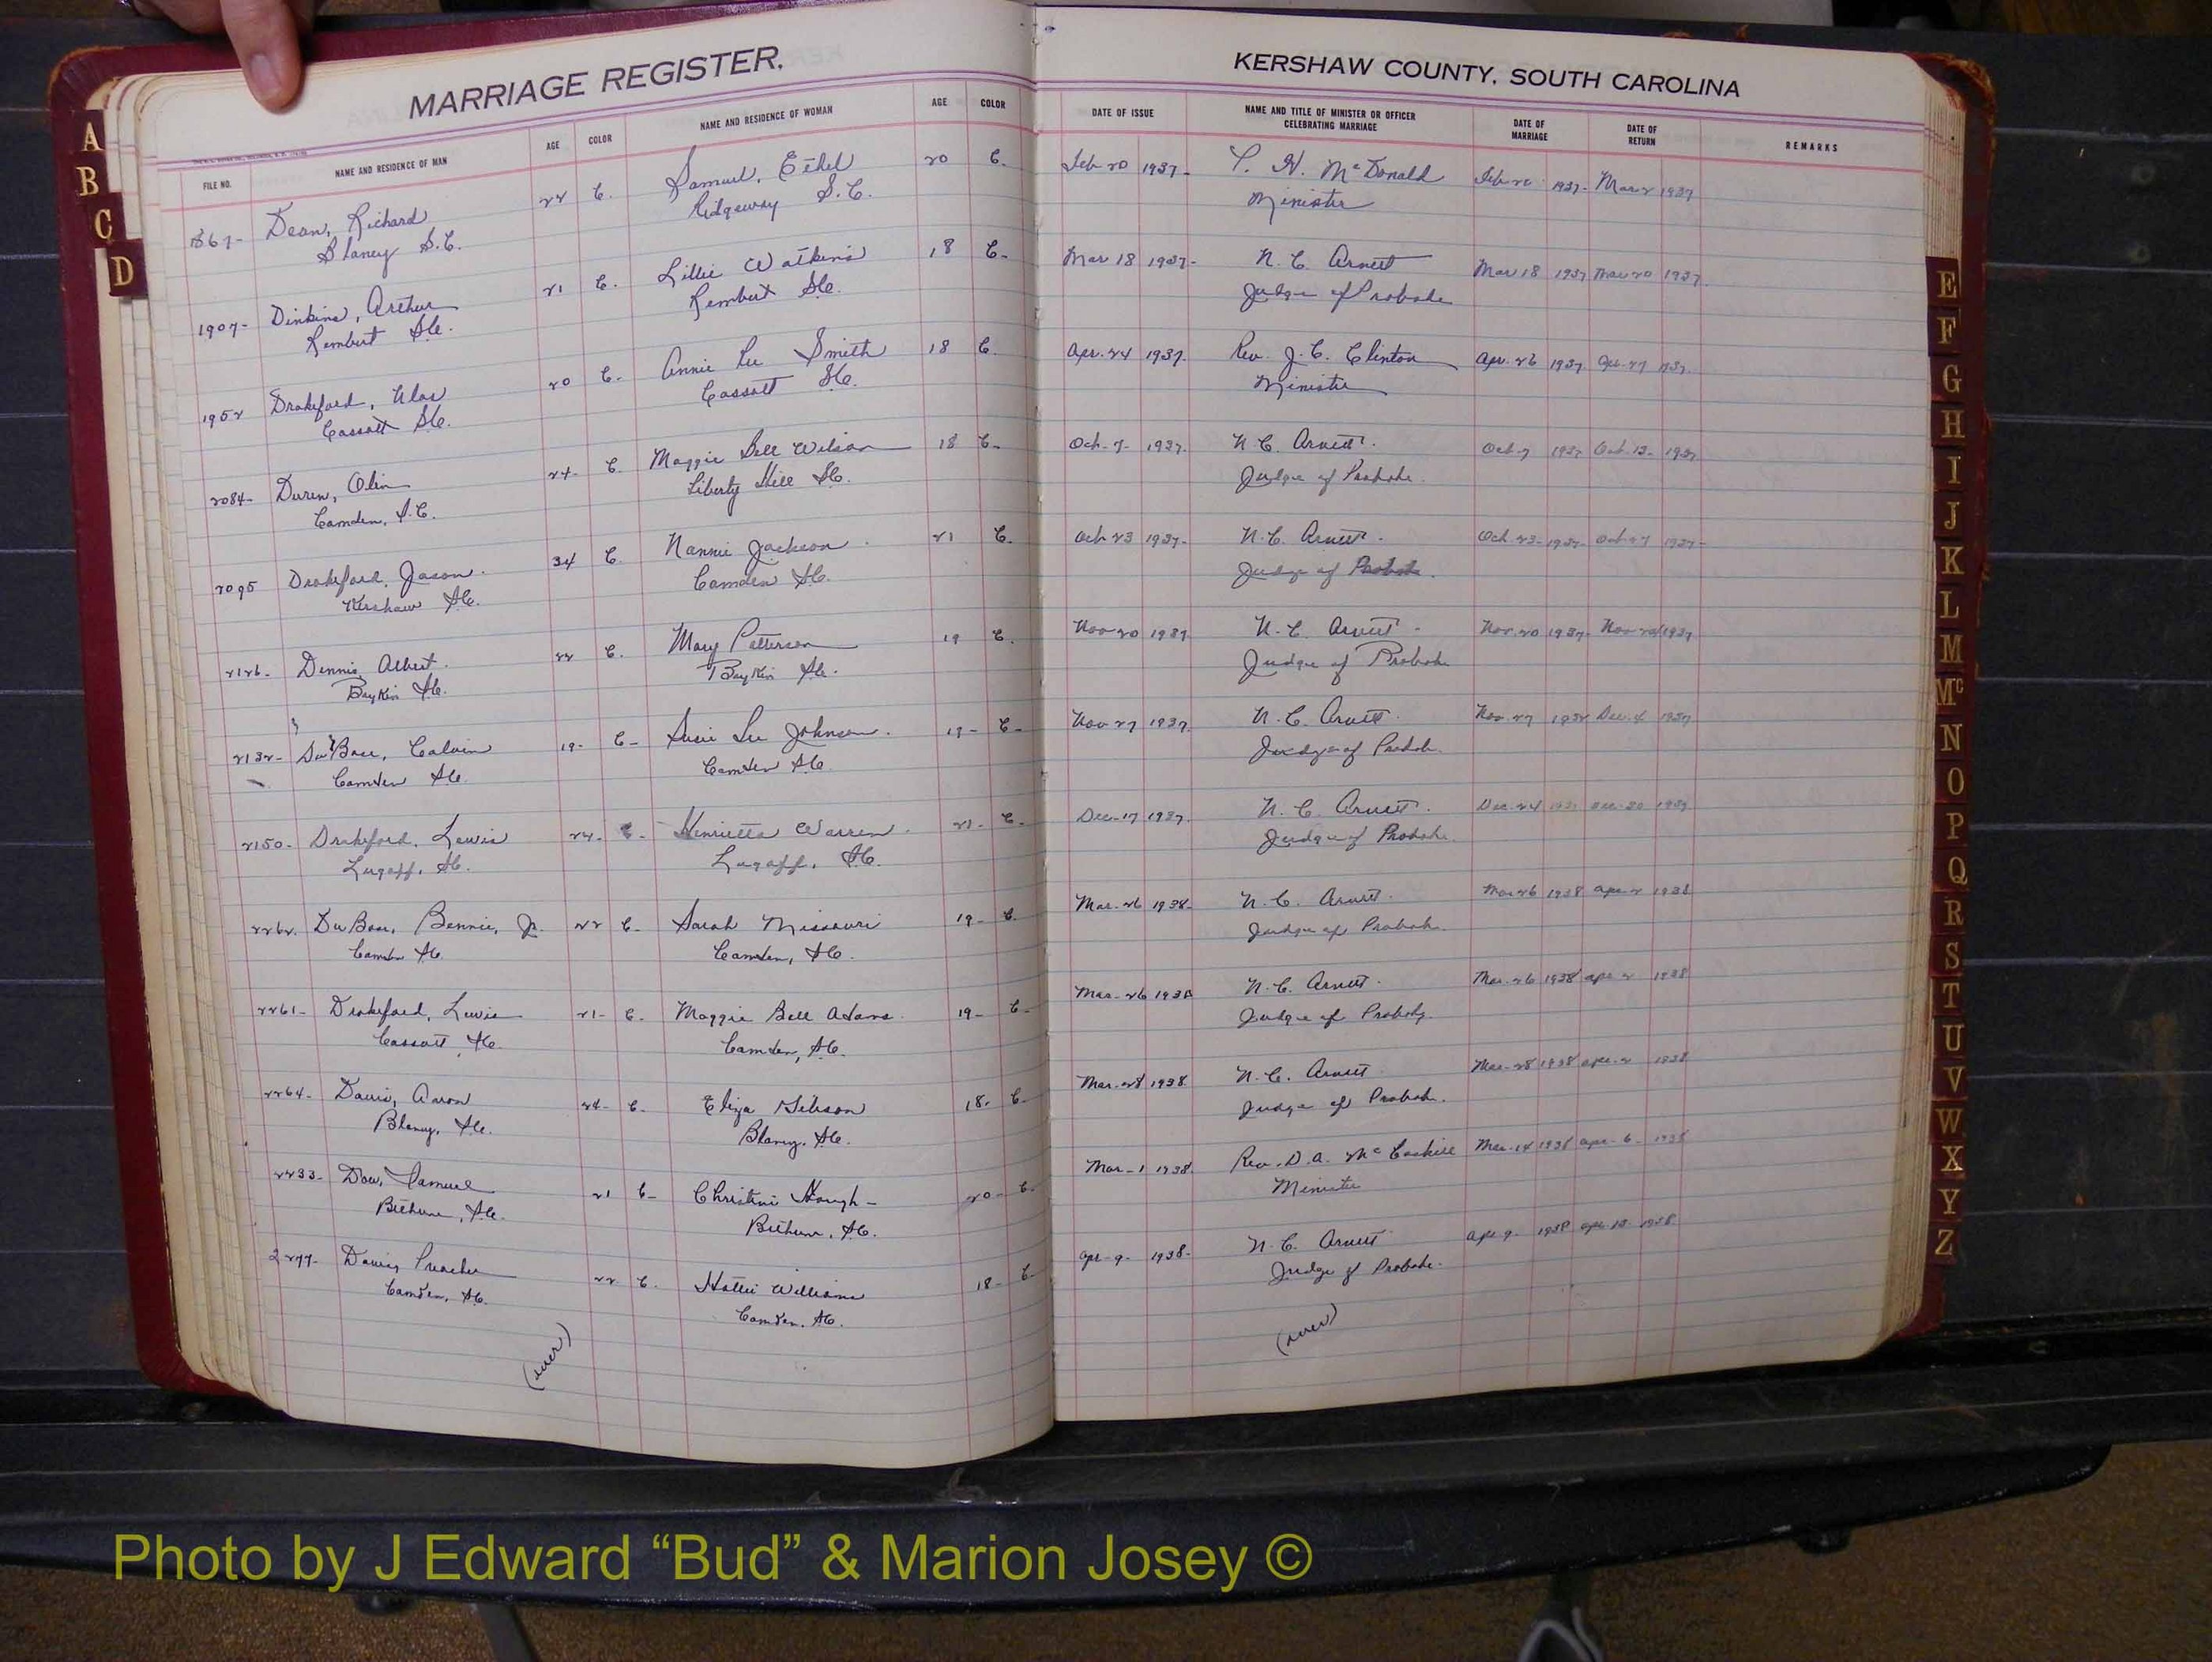 MARRIAGE REGISTER.
KERSHAW COUNTY, SOUTH CAROLINA
FILE NO. NAME AND RESIDENCE OF MAN AGE COLOR NAME AND RESIDENCE OF WOMAN AGE COLOR DATE OF ISSUE NAME AND TITLE OF MINISTER OR OFFICER CELEBRATING MARRIAGE DATE OF MARRIAGE DATE OF RETURN REMARKS
1867- Dean, Richard 24 C. Samuel, Ethel 20 C. Feb 20 1937- McDonald 1937- Mar 2 1937
Blaney S.C. Ridgeway S.C. Minister
1907- Dinkins, Arthur 21 C. Lillie Watkins 18 C- Mar 18 1937- N. C. Arnett Mar 18 1937 Mar 20 1937
Rembert S.C. Rembert S.C. Judge of Probate
1952 Drakeford, 20 C- Annie Lee Smith 18 C. Apr. 24 1937. Rev. J. C. Clinton Apr. 26 1937 Apr. 27 1937.
Cassatt S.C. Cassatt S.C. Minister
2084- Duren, Olin 24- C. Maggie Bell Wilson 18 C- Oct- 7- 1937. N. C. Arnett. Oct-7 1937 Oct. 13- 1937
Camden, S.C. Liberty Hill S.C. Judge of Probate.
2095 Drakeford, Jason. 34 C. Nannie Jackson 21 C. Oct 23 1937- N. C. Arnett. Oct 23- 1937- Oct 27 1937-
Kershaw S.C. Camden S.C. Judge of Probate.
2126- Dennis, Albert. 22 C. Mary Patterson 19 C. Nov 20 1937 N. C. Arnett- Nov. 20 1937- Nov 1937
Boykin S.C. Boykin S.C. Judge of Probate
2132- DuBose, Calvin 19- C- Susie Lee Johnson. 19- C- Nov 27 1937. N. C. Arnett. Nov. 27 Dec. 4 1937
Camden S.C. Camden S.C. Judge of Probate.
2150- Drakeford, Lewis 24- C- Henrietta Warren. 21- C- Dec-17 1937. N. C. Arnett. Dec-24 1937
Lugoff, S.C. Lugoff, S.C. Judge of Probate.
2262. DuBose, Bennie, Jr. 22 C- Sarah Missouri 19- C. Mar.-26 1938- N. C. Arnett. Mar 26 1938 Apr-2 1938
Camden S.C. Camden, S.C. Judge of Probate.
2261- Drakeford, Lewis 21- C- Maggie Bell Adams. 19- C- Mar-26 1938 N. C. Arnett. Mar.-26 1938 Apr 2 1938
Cassatt, S.C. Camden, S.C. Judge of Probate.
2264- Davis, Aaron 24- C- Eliza Gibson 18. C- Mar.-28 1938. N. C. Arnett Mar-28 1938 Apr-2 1938
Blaney, S.C. Blaney, S.C. Judge of Probate.
2233- Dow, Samuel 21 C- Christine Hough- 20- C- Mar-1 1938. Rev. D. A. McCaskill Mar-14 1938 Apr-6- 1938
Bethune, S.C. Bethune, S.C. Minister
2277- Davis, Preacher 22 C. Hattie Williams 18- C- Apr-9- 1938- N. C. Arnett Apr 9- 1938 Apr-13- 1938
Camden, S.C. Camden. S.C. Judge of Probate.
(over) (over)
A
B
C
D
E
F
G
H
I
J
K
L
M
Mc
N
O
P
Q
R
S
T
U
V
W
X
Y
Z
Photo by J Edward “Bud” & Marion Josey ©